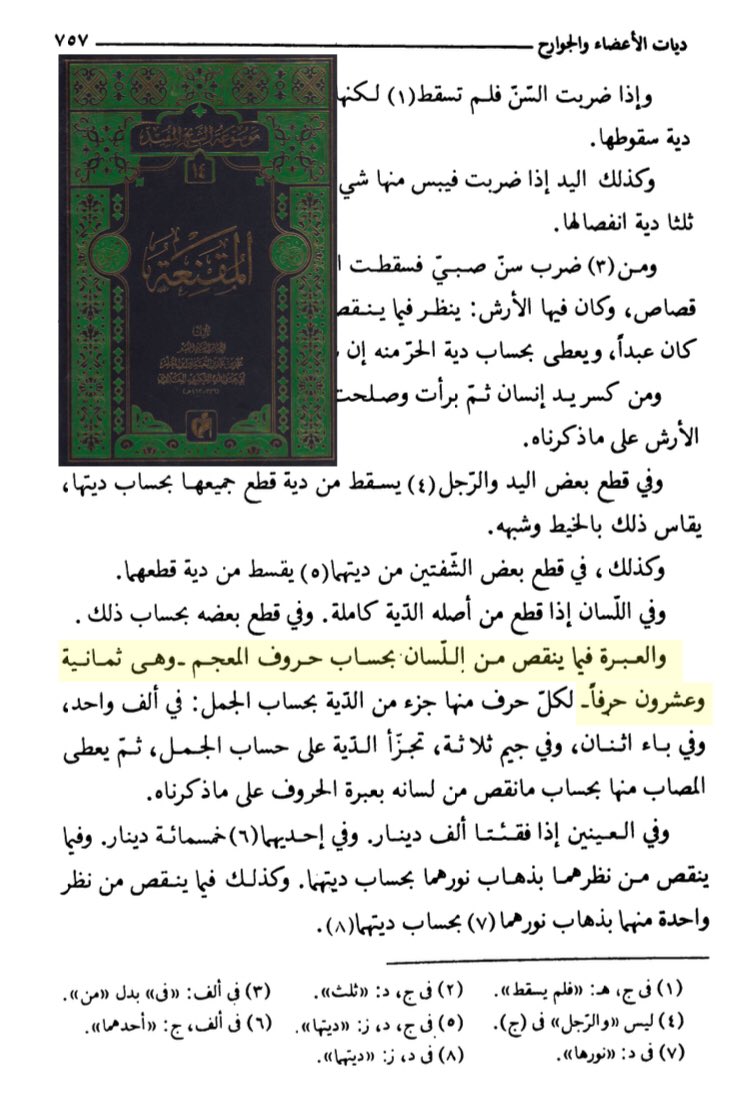 ديات الأعضاء والجوارح ٧٥٧
وإذا ضربت السّنّ فلم تسقط(١) لكنها
دية سقوطها.
وكذلك اليد إذا ضربت فيبس منها شي
ثلثا دية انفصالها.
ومن(٣) ضرب سنّ صبيّ فسقطت
قصاص، وكان فيها الأرش: ينظر فيما ينقص
كان عبداً، ويعطى بحساب دية الحرّ منه إن
ومن كسر يد إنسان ثمّ برأت وصلحت
الأرش على ماذكرناه.
موسوعة الشيخ المفيد
١٤
المقنعة
وفي قطع بعض اليد والرّجل(٤) يسقط من دية قطع جميعها بحساب ديتها،
يقاس ذلك بالخيط وشبهه.
وكذلك، في قطع بعض الشّفتين من ديتهما(٥) يقسط من دية قطعهما.
وفي اللّسان إذا قطع من أصله الدّية كاملة. وفي قطع بعضه بحساب ذلك.
والعبرة فيما ينقص من اللّسان بحساب حروف المعجم -وهى ثمانية
وعشرون حرفاً- لكلّ حرف منها جزء من الدّية بحساب الجمل: في ألف واحد،
وفي باء اثنان، وفي جيم ثلاثة، تجزّأ الدّية على حساب الجمل، ثمّ يعطى
المصاب منها بحساب مانقص من لسانه بعبرة الحروف على ماذكرناه.
وفي العينين إذا فقئتا ألف دينار. وفي إحديهما(٦) خمسمائة دينار. وفيما
ينقص من نظرهما بذهاب نورهما بحساب ديتهما. وكذلك فيما ينقص من نظر
واحدة منهما بذهاب نورهما(٧) بحساب ديتهما(٨).
(١) فى ج، هـ: «فلم يسقط». (٢) فى ج، د: «ثلث». (٣) فى ألف: «فى» بدل «من».
(٤) ليس «والرّجل» فى (ج). (٥) فى ج، د، ز: «ديتها». (٦) فى ألف، ج: «أحدهما».
(٧) فى د: «نورها». (٨) فى د، ز: «ديتهما».